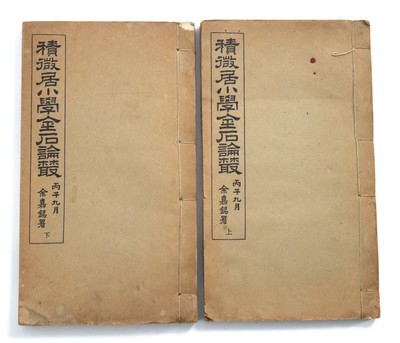 積微居小學金石論叢
丙子九月
余嘉錫署
上
積微居小學金石論叢
丙子九月
余嘉錫署
下